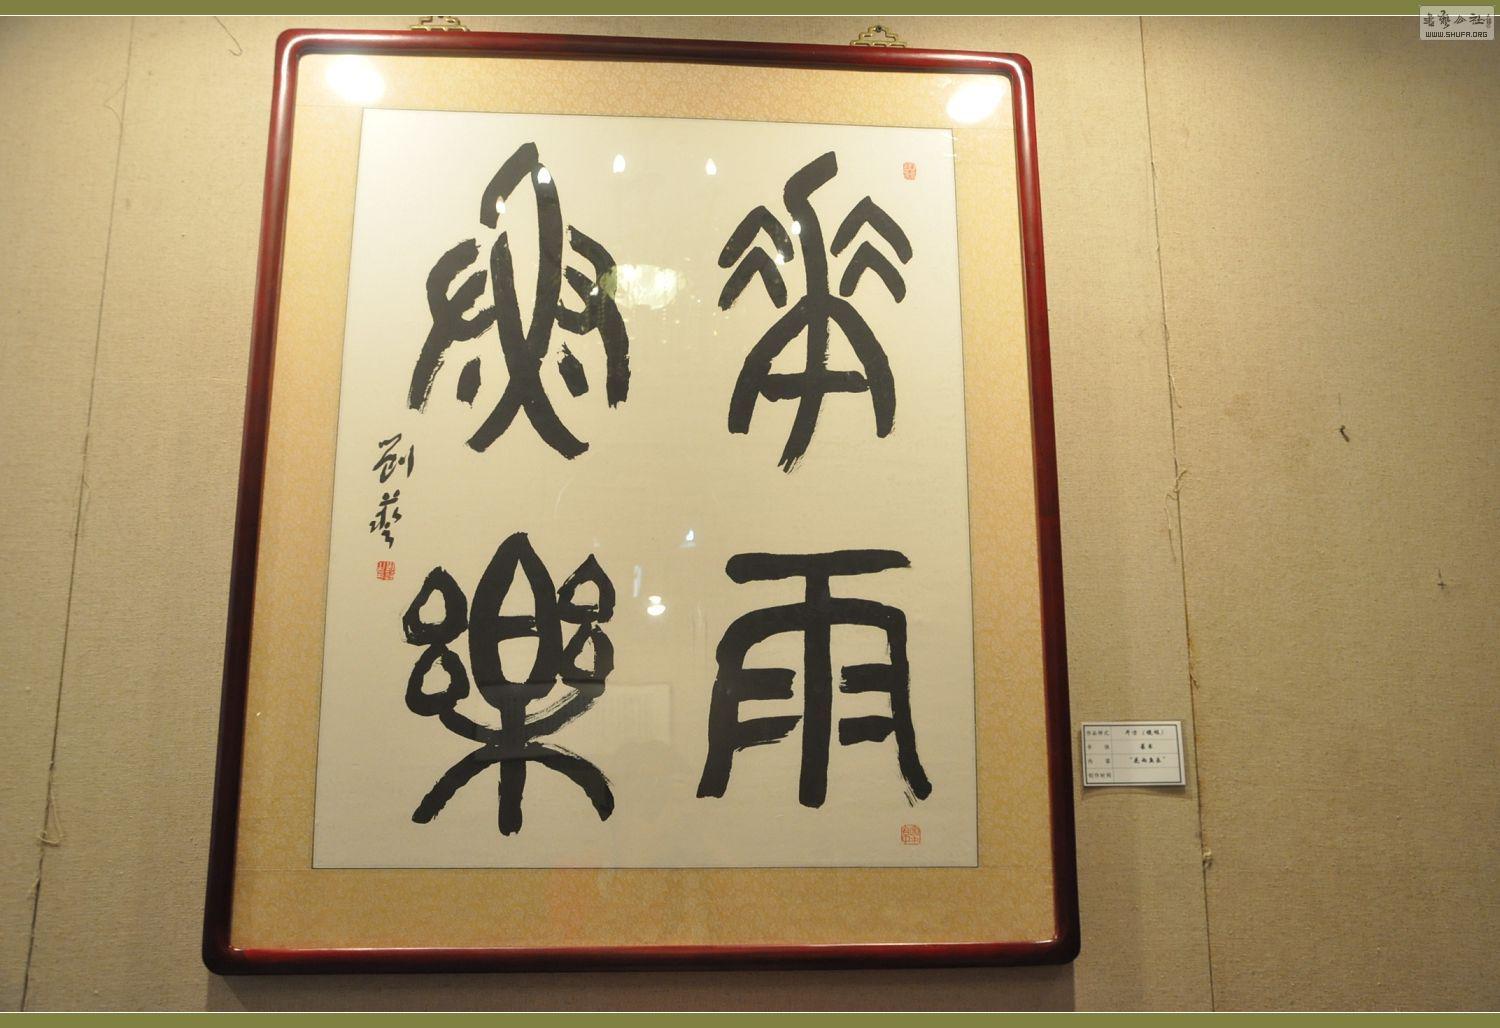 華雨
魚樂
劉藝
作品样式
斗方（镜框）
书体
篆书
内容
“花雨鱼乐”
创作时间
书艺公社
WWW.SHUFA.ORG